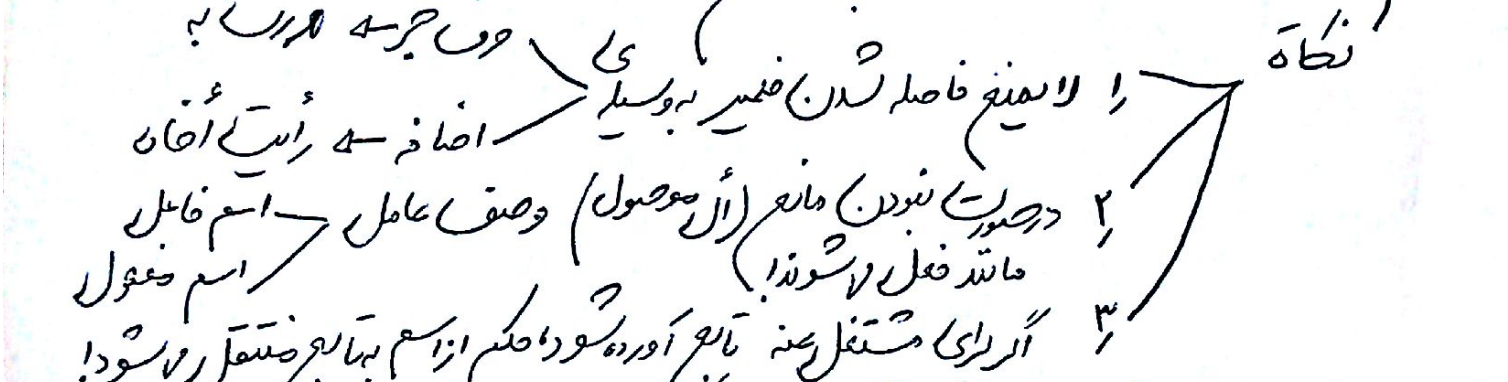 نکات
۱ لا یمنع فاصله شدن ضمیر به وسیله‌ی
حرف جر ← مررت به
اضافه ← رأیت أخاه
۲ در صورت نبودن مانع (أل موصول) وصف عامل
اسم فاعل
اسم مفعول
مانند فعل می‌شوند!
۳ اگر برای مشتغل عنه تابع آورده شود، حکم از اسم به تابع منتقل می‌شود!